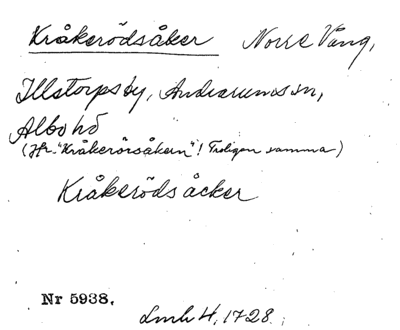 Kråkerödsåker Norre Vång,
Illstorps by, Andrarums sn,
Albo hd
(Jfr. "Kråkerörsåkern"! Troligen samma)
Kråkeröds åcker
Nr 5938.
Lmh 4, 1728.